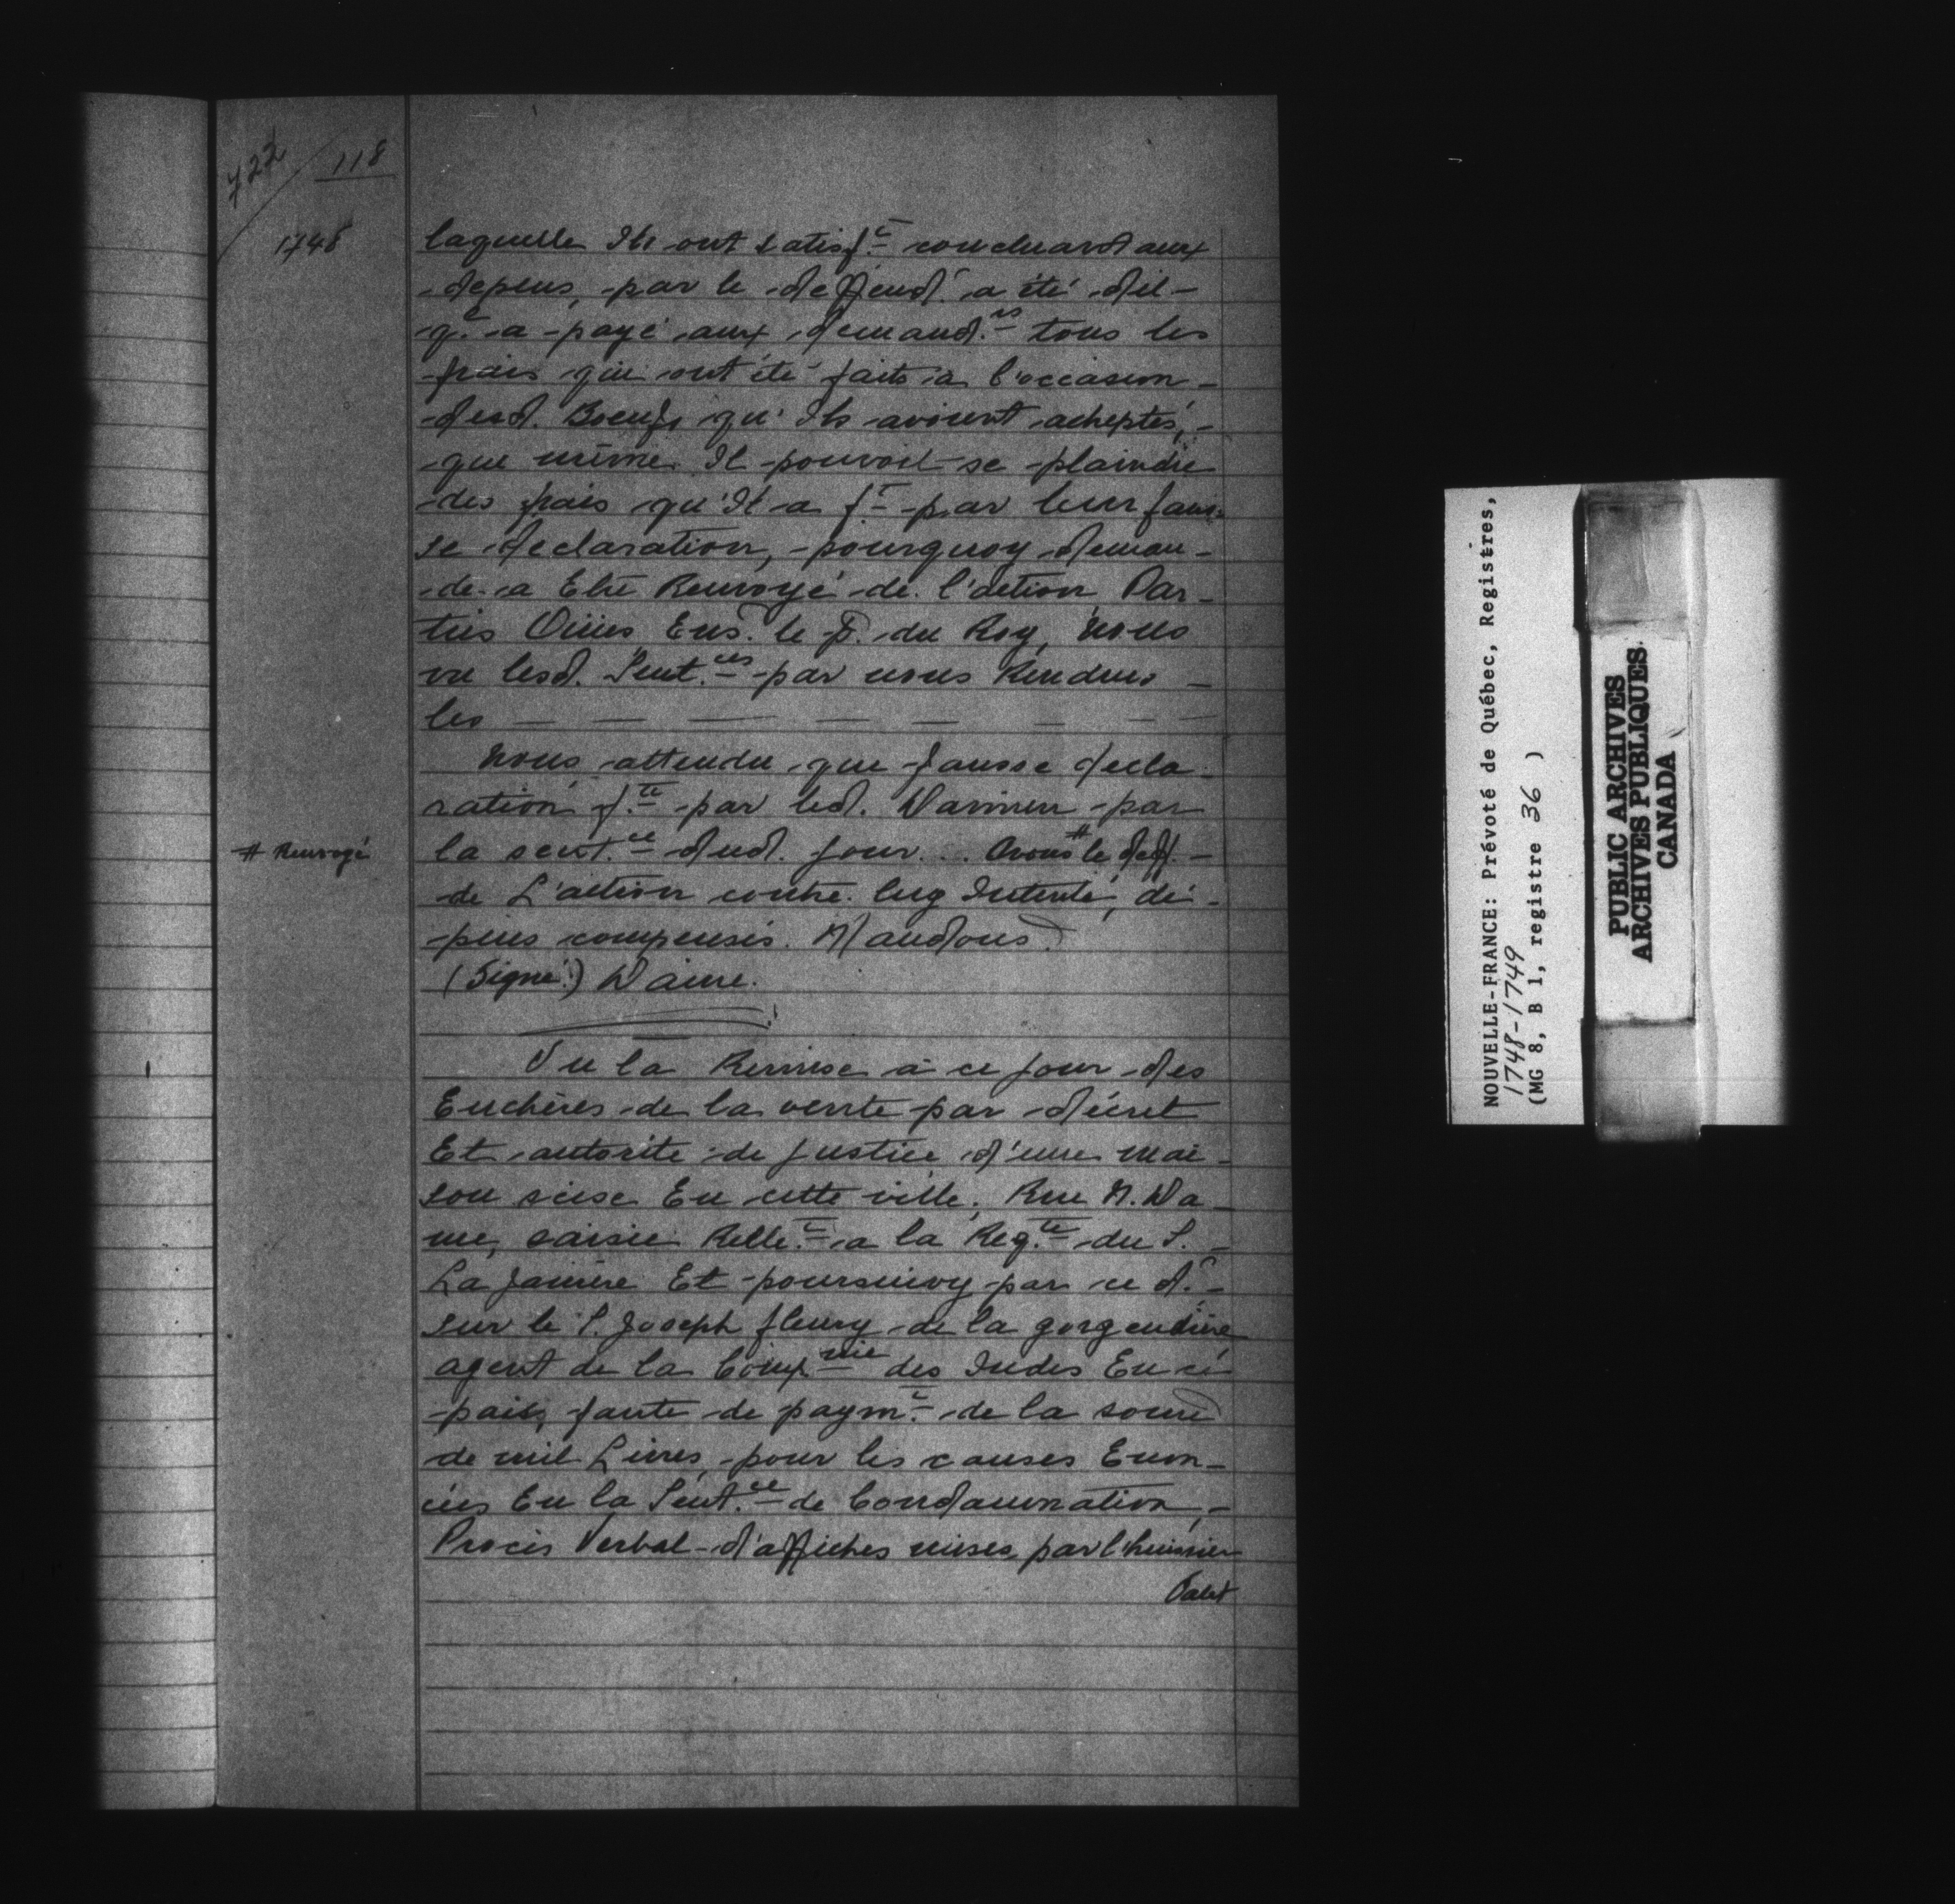 722 / 118
1748
laquelle Ils ont satisf.t concluant aux
depens, par le deffend.r a été dit
q.l a payé aux demand.rs tous les
frais qui ont été faits à l'occasion
desd. Boeufs qu'Ils avoient acheptés,
que même Il pouvoit se plaindre
des frais qu'Il a f.t par leur faus-
se declaration, pourquoy deman-
de a Etre Renvoyé de l'action Par-
ties Oüies Ens. le P. du Roy, Nous
vu lesd. Sent.ces par nous Rendues
les — — — — — — —
Nous attendu que fausse decla-
ration f.te par led. par
la sent.ce dud. jour... Avons # le deff.
# Renvoyé
de L'action contre luy Intenté, dé-
pens compensés. Mandons.
(Signé:) Daine.
Vu la Remise à ce jour des
Enchères de la vente par décret
Et autorité de justice d'une mai-
son scise En cette ville, Rue N. Da-
me, saisie Relle.t a la Req.te du S.
La Et poursuivy par ce d.t
sur le S. Joseph fleury de la gorgendiere
agent de la Comp.nie des Indes En ce
païs, faute de paym.t de la some
de mil Livres, pour les causes Enon-
cées En la Sent.ce de Condamnation,
Procès Verbal d'affiches mises par l'huissier
Valet
NOUVELLE-FRANCE: Prévoté de Québec, Registres,
1748-1749
(MG 8, B 1, registre 36 )
PUBLIC ARCHIVES
ARCHIVES PUBLIQUES
CANADA